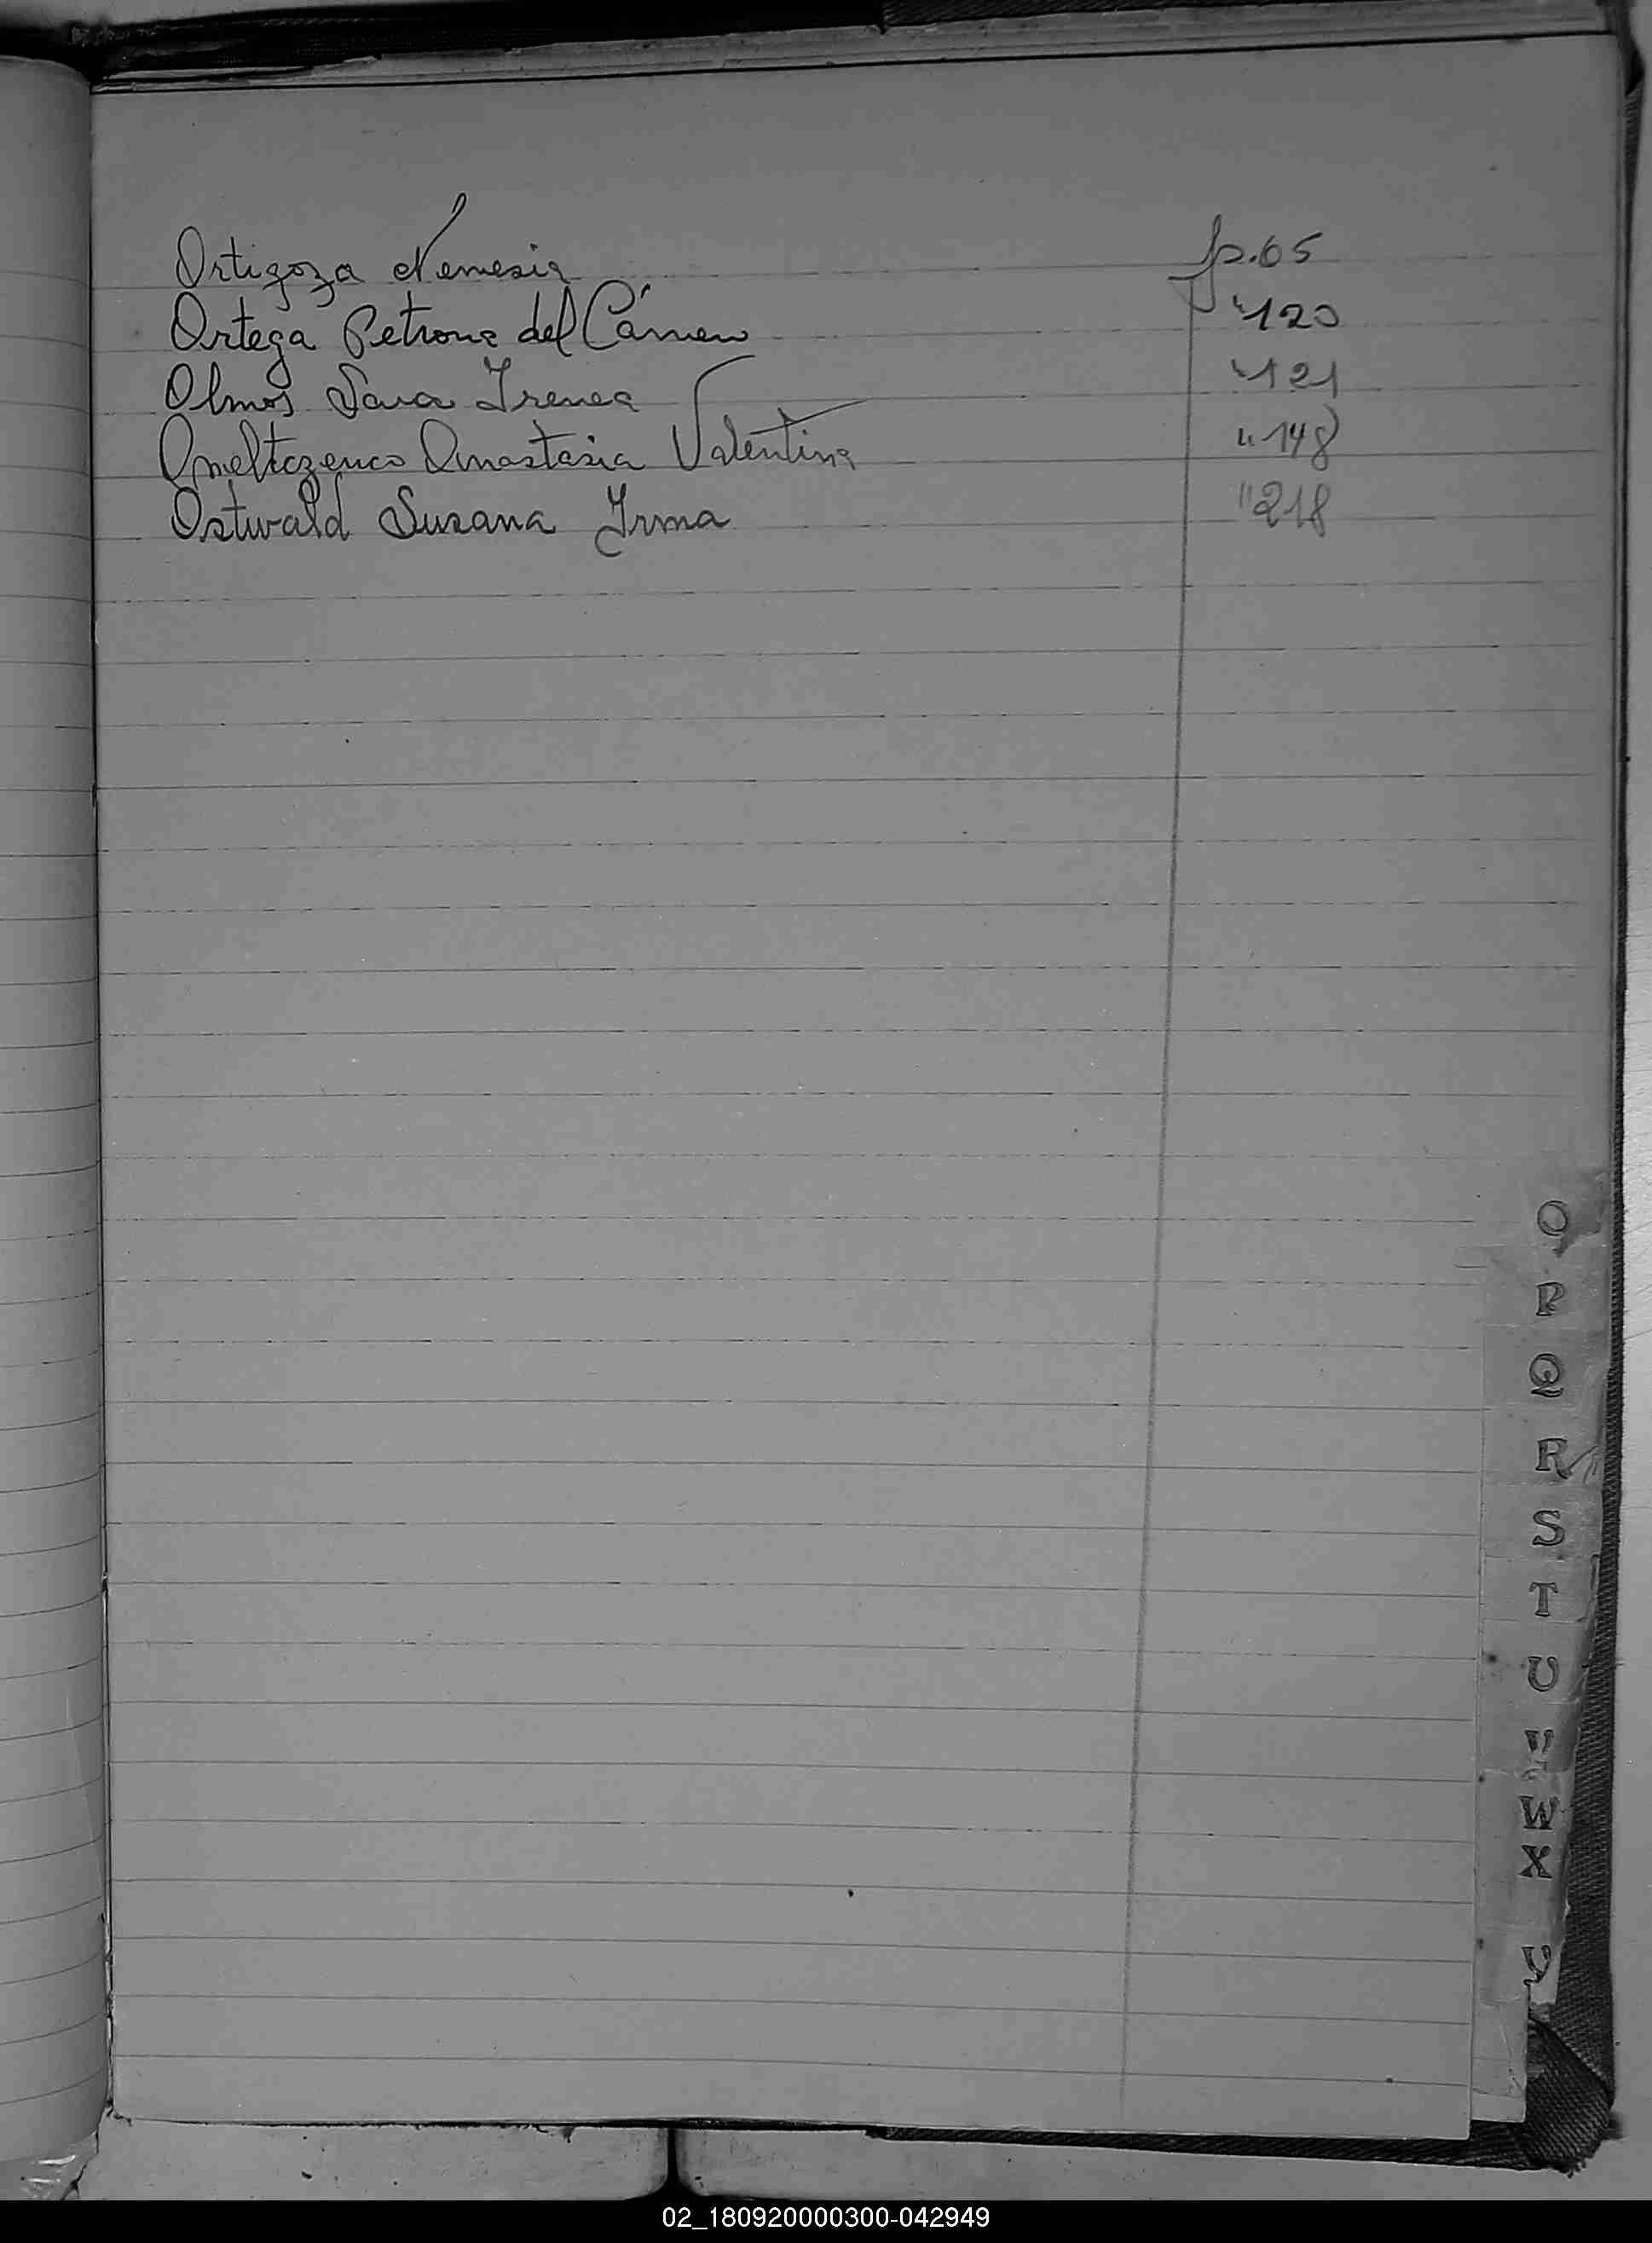 Ortigoza Nemesia p. 65
Ortega Petrona del Cármen " 120
Olmos Sara Irenea " 121
Omeltczenco Anastasia Valentina " 148
Ostwald Susana Irma " 218
O
P
Q
R
S
T
U
W
X
Y
02_180920000300-042949